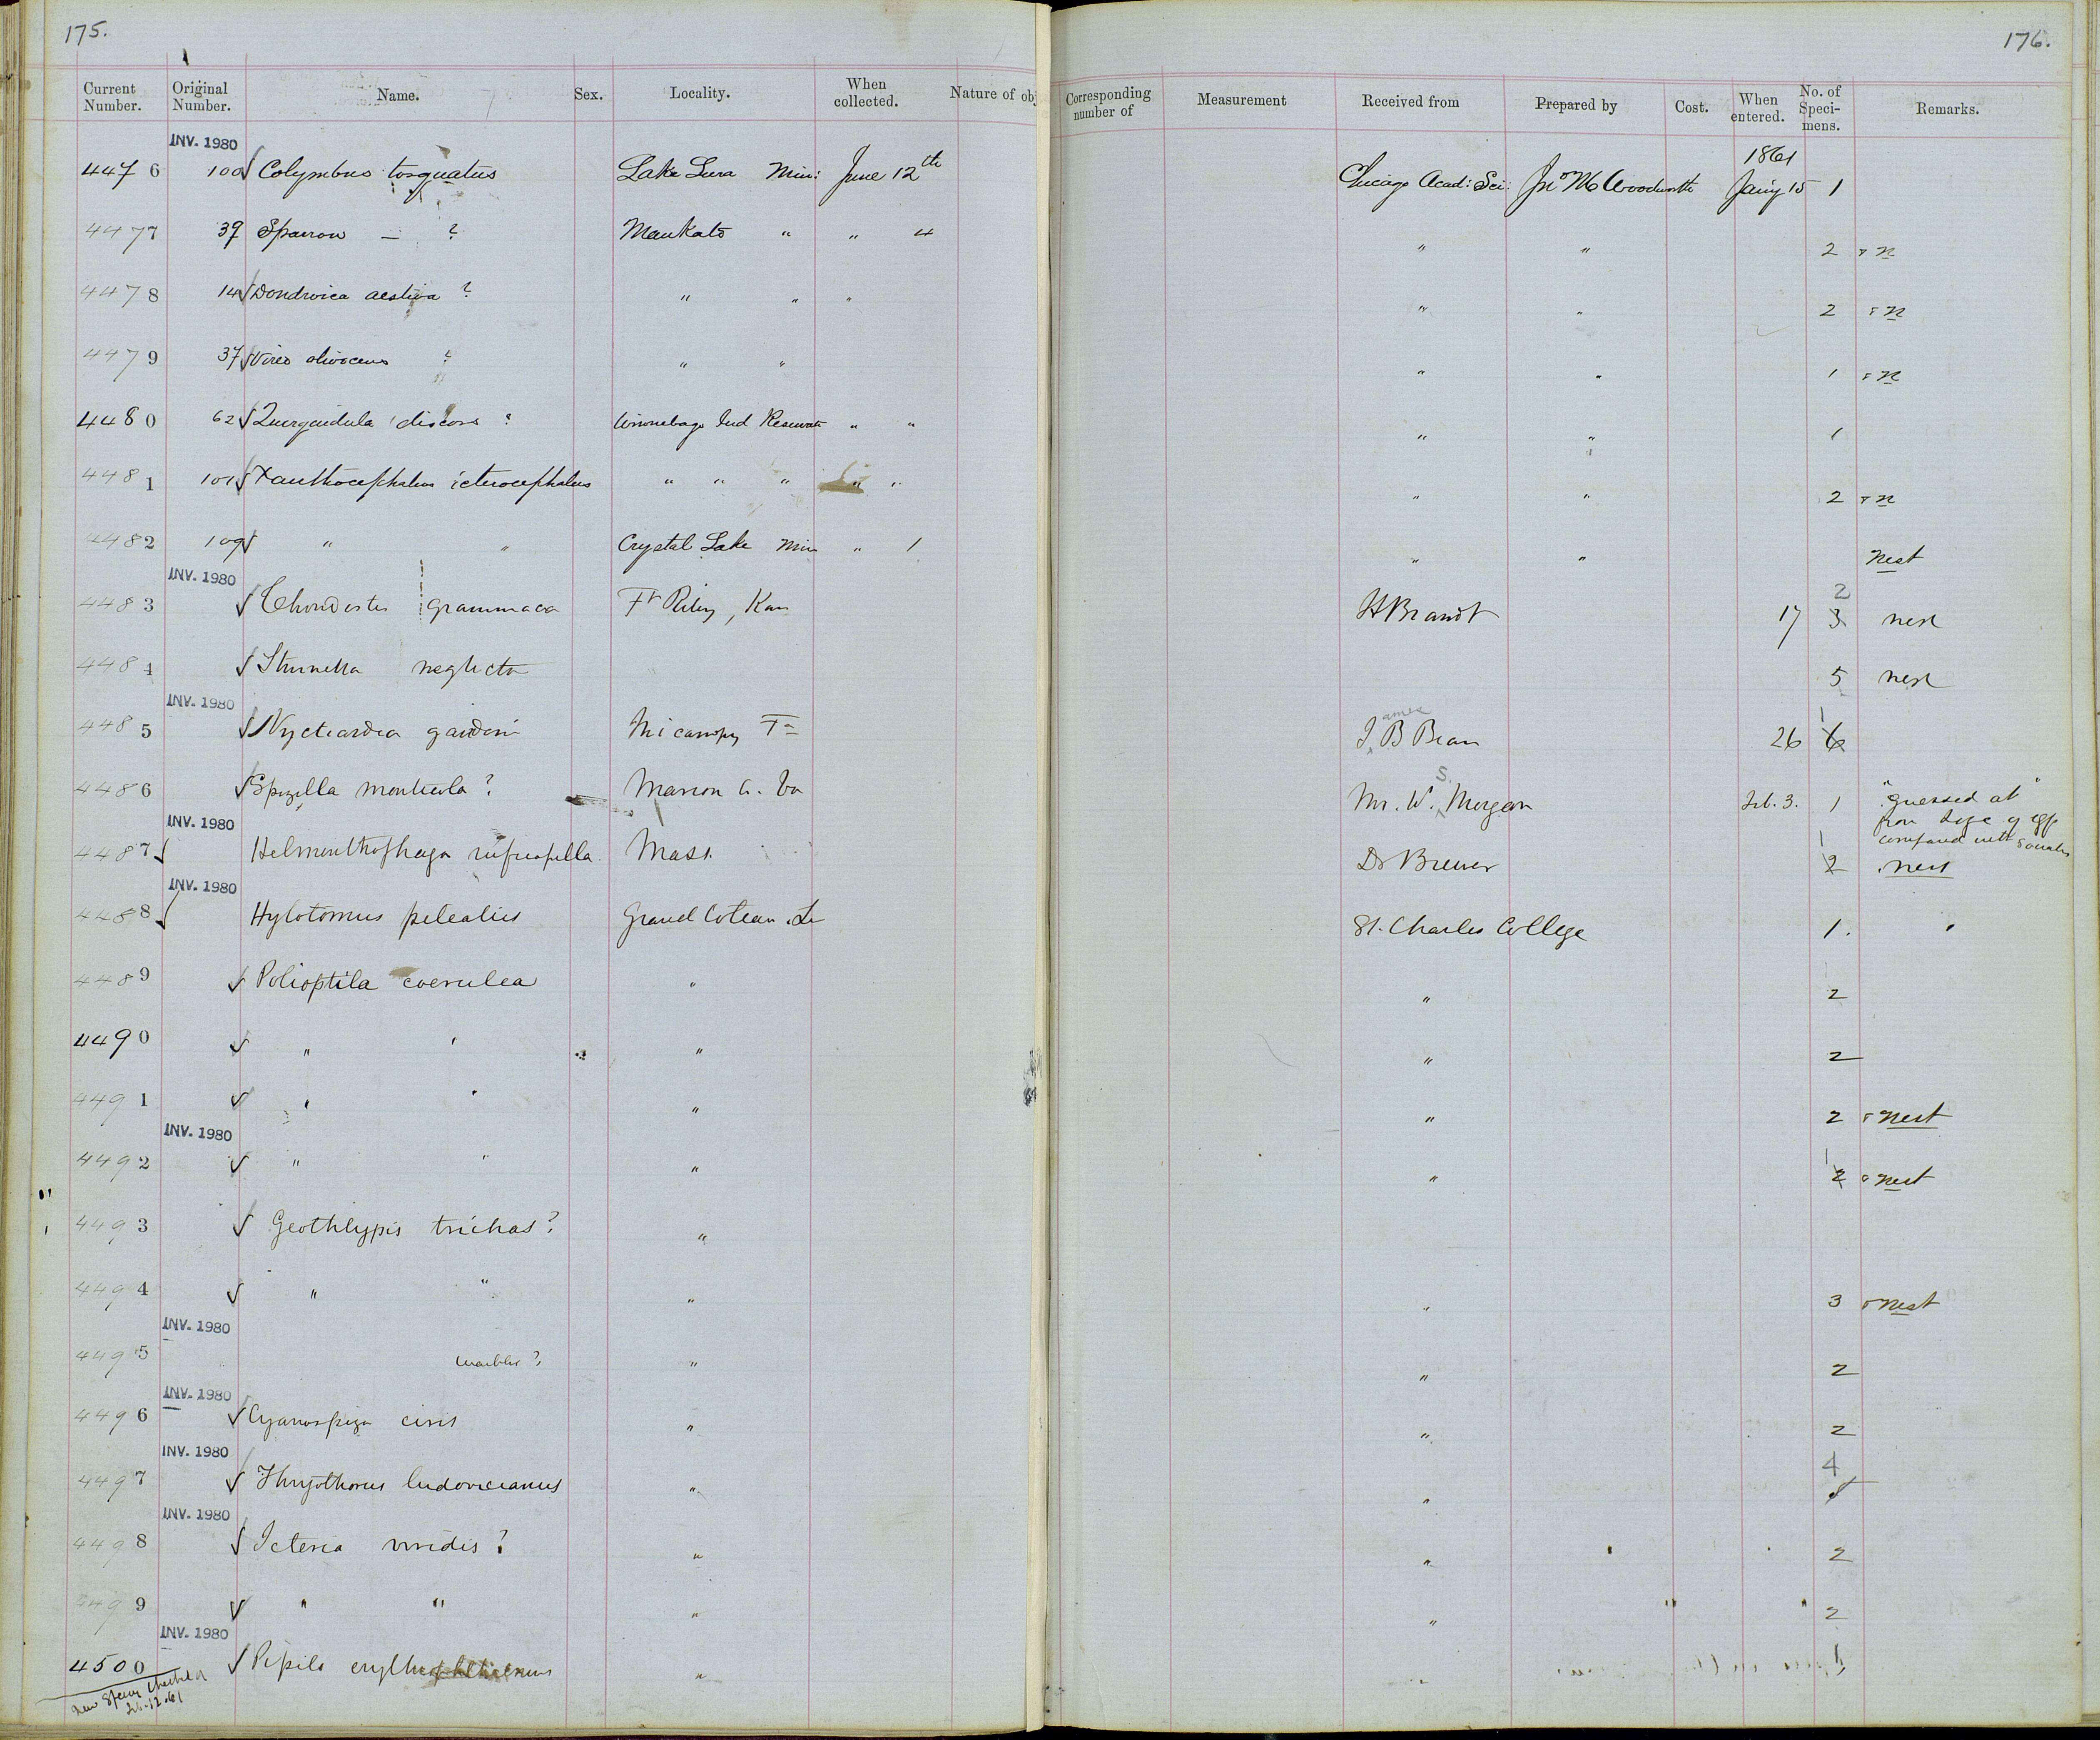 175.
176.
Current Number. Original Number. Name. Sex. Locality. When collected. Nature of obj Corresponding number of Measurement Received from Prepared by Cost. When entered. No. of Speci-mens. Remarks.
INV. 1980
1861
4476 100 √ Colymbus torquatus Lake Lura Min: June 12th Chicago Acad: Sci: Jno M Woodworth Jany 15 1
4477 39 Sparrow — ? Mankato " " 4 " " 2 & n
4478 14 √ Dendroica aestiva ? " " " " " 2 & n
4479 37 √ Vireo olivaceus ? " " " " 1 & n
4480 62 √ Querquidula discors ? Winnebago Ind Reservat " " " " 1
4481 101 √ Xanthocephalus icterocephalus " " " " " " " 2 & n
4482 109 √ " " Crystal Lake Min " 1 " " Nest
INV. 1980
4483 √ Chondestes grammaca Ft Riley, Kan H Brandt 17 3 2 nest
4484 √ Sturnella neglecta 5 nest
INV. 1980
4485 √ Nycteardea gardeni Micanopy Fa James B Bean 26 6 1
4486 √ Spizella monticola ? Marion Co. Va Mr. W. S. Morgan Feb. 3. 1 "guessed at"
from size of egg
compared with socialis
INV. 1980
4487 √ Helminthophaga ruficapilla Mass. Dr Brewer 2 1 nest
INV. 1980
4488 √ Hylotomus pileatus Grand Coteau. La St. Charles College 1.
4489 √ Polioptila coerulea " " 2
4490 √ " " " " 2
4491 √ " " " " 2 & nest
INV. 1980
4492 √ " " " " 2 1 & nest
4493 √ Geothlypis trichas ? "
4494 √ " " " " 3 & nest
INV. 1980
4495 warbler ? " " 2
INV. 1980
4496 √ Cyanospiza ciris " " 2
INV. 1980
4497 √ Thryothorus ludovicianus " " 4
INV. 1980
4498 √ Icteria viridis ? " " 2
4499 √ " " " " 2
INV. 1980
4500 √ Pipilo erythrophthalmus " " 1
Feb. 12. 61